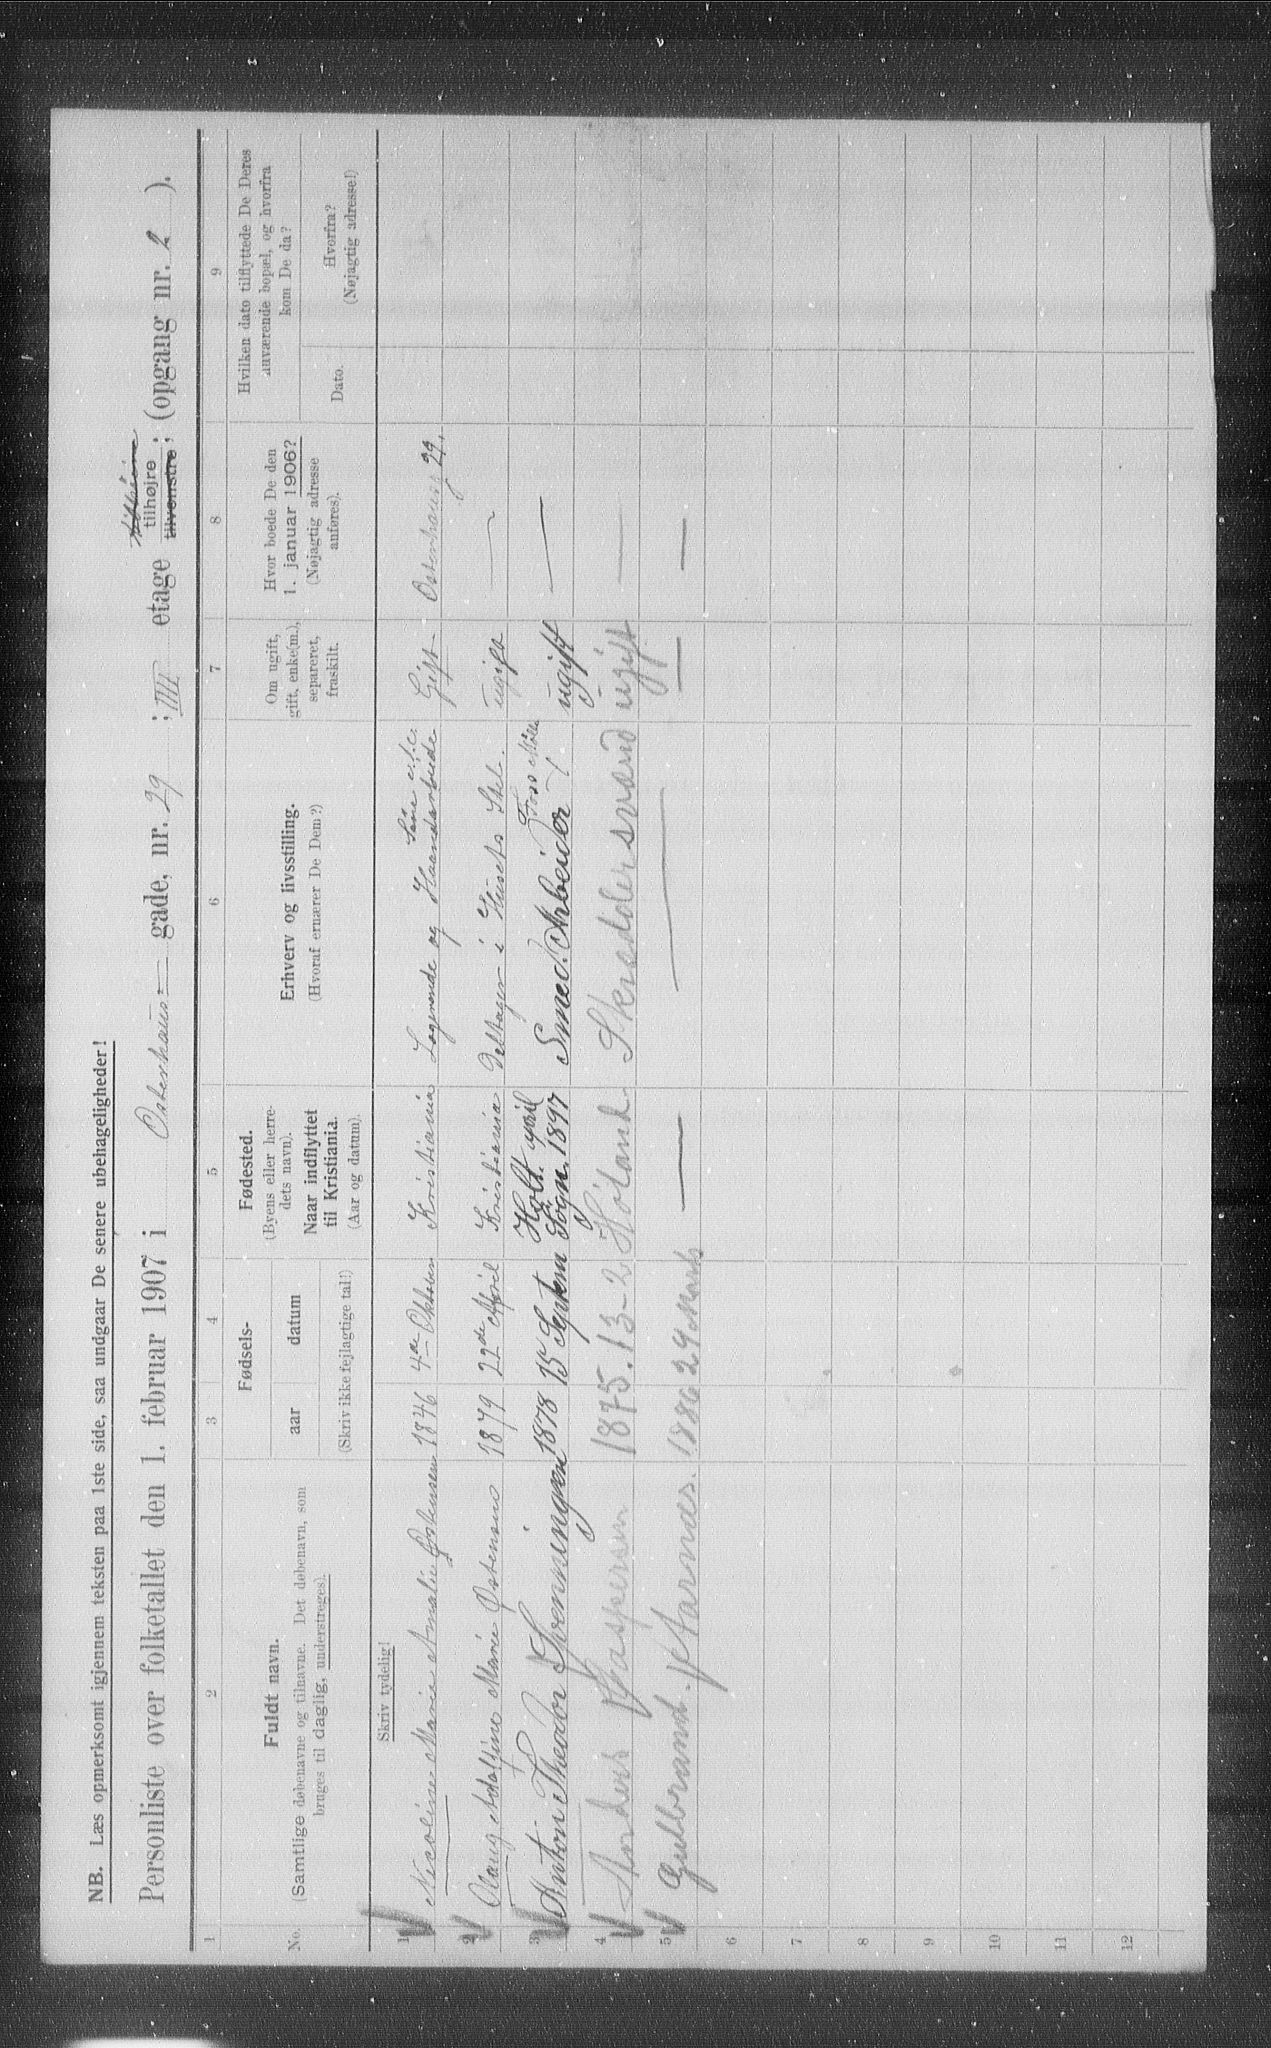 NB. Læs opmerksomt igjennem teksten paa 1ste side, saa undgaar De senere ubehageligheder!
Personliste over folketallet den 1. februar 1907 i Osterhaus- gade, nr. 29 ; IIII etage tilhøjre tilvenstre; (opgang nr. 2 ).
1 2 3 4 5 6 7 8 9
No.
Fuldt navn.
(Samtlige døbenavne og tilnavne. Det døbenavn, som
bruges til daglig, understreges).
Fødsels-
aar datum
(Skriv ikke fejlagtige tal!)
Fødested.
(Byens eller herre-
dets navn).
Naar indflyttet
til Kristiania.
(Aar og datum).
Erhverv og livsstilling.
(Hvoraf ernærer De Dem?)
Om ugift,
gift, enke(m.),
separeret,
fraskilt.
Hvor boede De den
1. januar 1906?
(Nøjagtig adresse
anføres).
Hvilken dato tilflyttede De Deres
nuværende bopæl, og hvorfra
kom De da?
Dato.
Hvorfra?
(Nøjagtig adresse!)
Skriv tydelig!
1 Nicoline Marie Amalie 1846 4de Oktober Kristiania Logerende og Haandarbeide Gift Osterhausg 29.
2 Olaug Adolfine Marie Østensens 1879 22de April Kristiania Deltager i Husets Stel. ugift —
3 Anton Theodor Svenningsen 1878 15 Septem Holt Sogn. april 1897 Smed. Arbeider Foss ugift —
4 Anders Kaspersen 1875. 13-2 Höland. Skreddersvend ugift —
5 Gulbrand. 1886 29 Marts — — — —
6
7
8
9
10
11
12